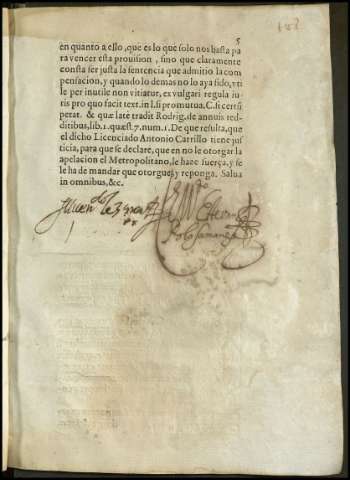 5
en quanto a ello, que es lo que solo nos basta pa
ra vencer esta prouision, sino que claramente
consta ser justa la sentencia que admitio la com
pensacion, y quando lo demas no aya sido, vti
le per inutile non vitiatur, ex vulgari regula iu-
ris pro quo facit text. in l. si promutua. C. si cert.
petat. & quæ latè tradit Rodrig. de annuis red-
ditibus, lib. 1. quæst. 7. num. 1. De que resulta, que
el dicho Licenciado Antonio Carrillo tiene jus
ticia, para que se declare, que en no le otorgar la
apelacion el Metropolitano, le hace fuerça, y se
le ha de mandar que otorgue, y reponga. Salua
in omnibus, &c.